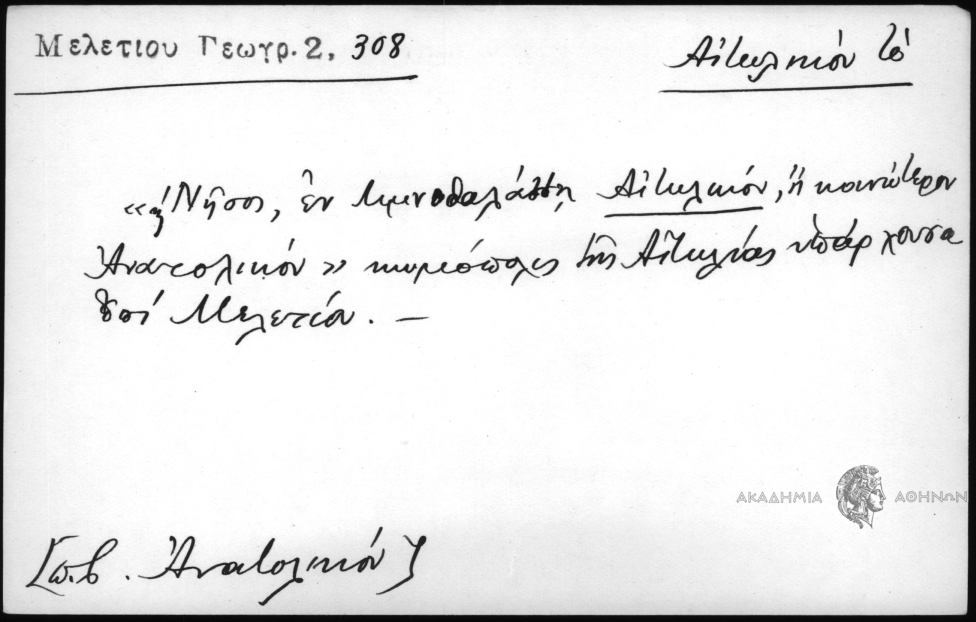 Μελετιου Γεωγρ. 2, 308
Αἰτωλικόν τό
«ἡ Νῆσος, ἐν λιμνοθαλάσσῃ Αἰτωλικόν, ἤ κοινώτερον
Ἀνατολικόν» κωμόπολις τῆς Αἰτωλίας ὑπάρχουσα
ἐπί Μελετίου. —
ΑΚΑΔΗΜΙΑ ΑΘΗΝΩΝ
[π.β. Ἀνατολικόν]